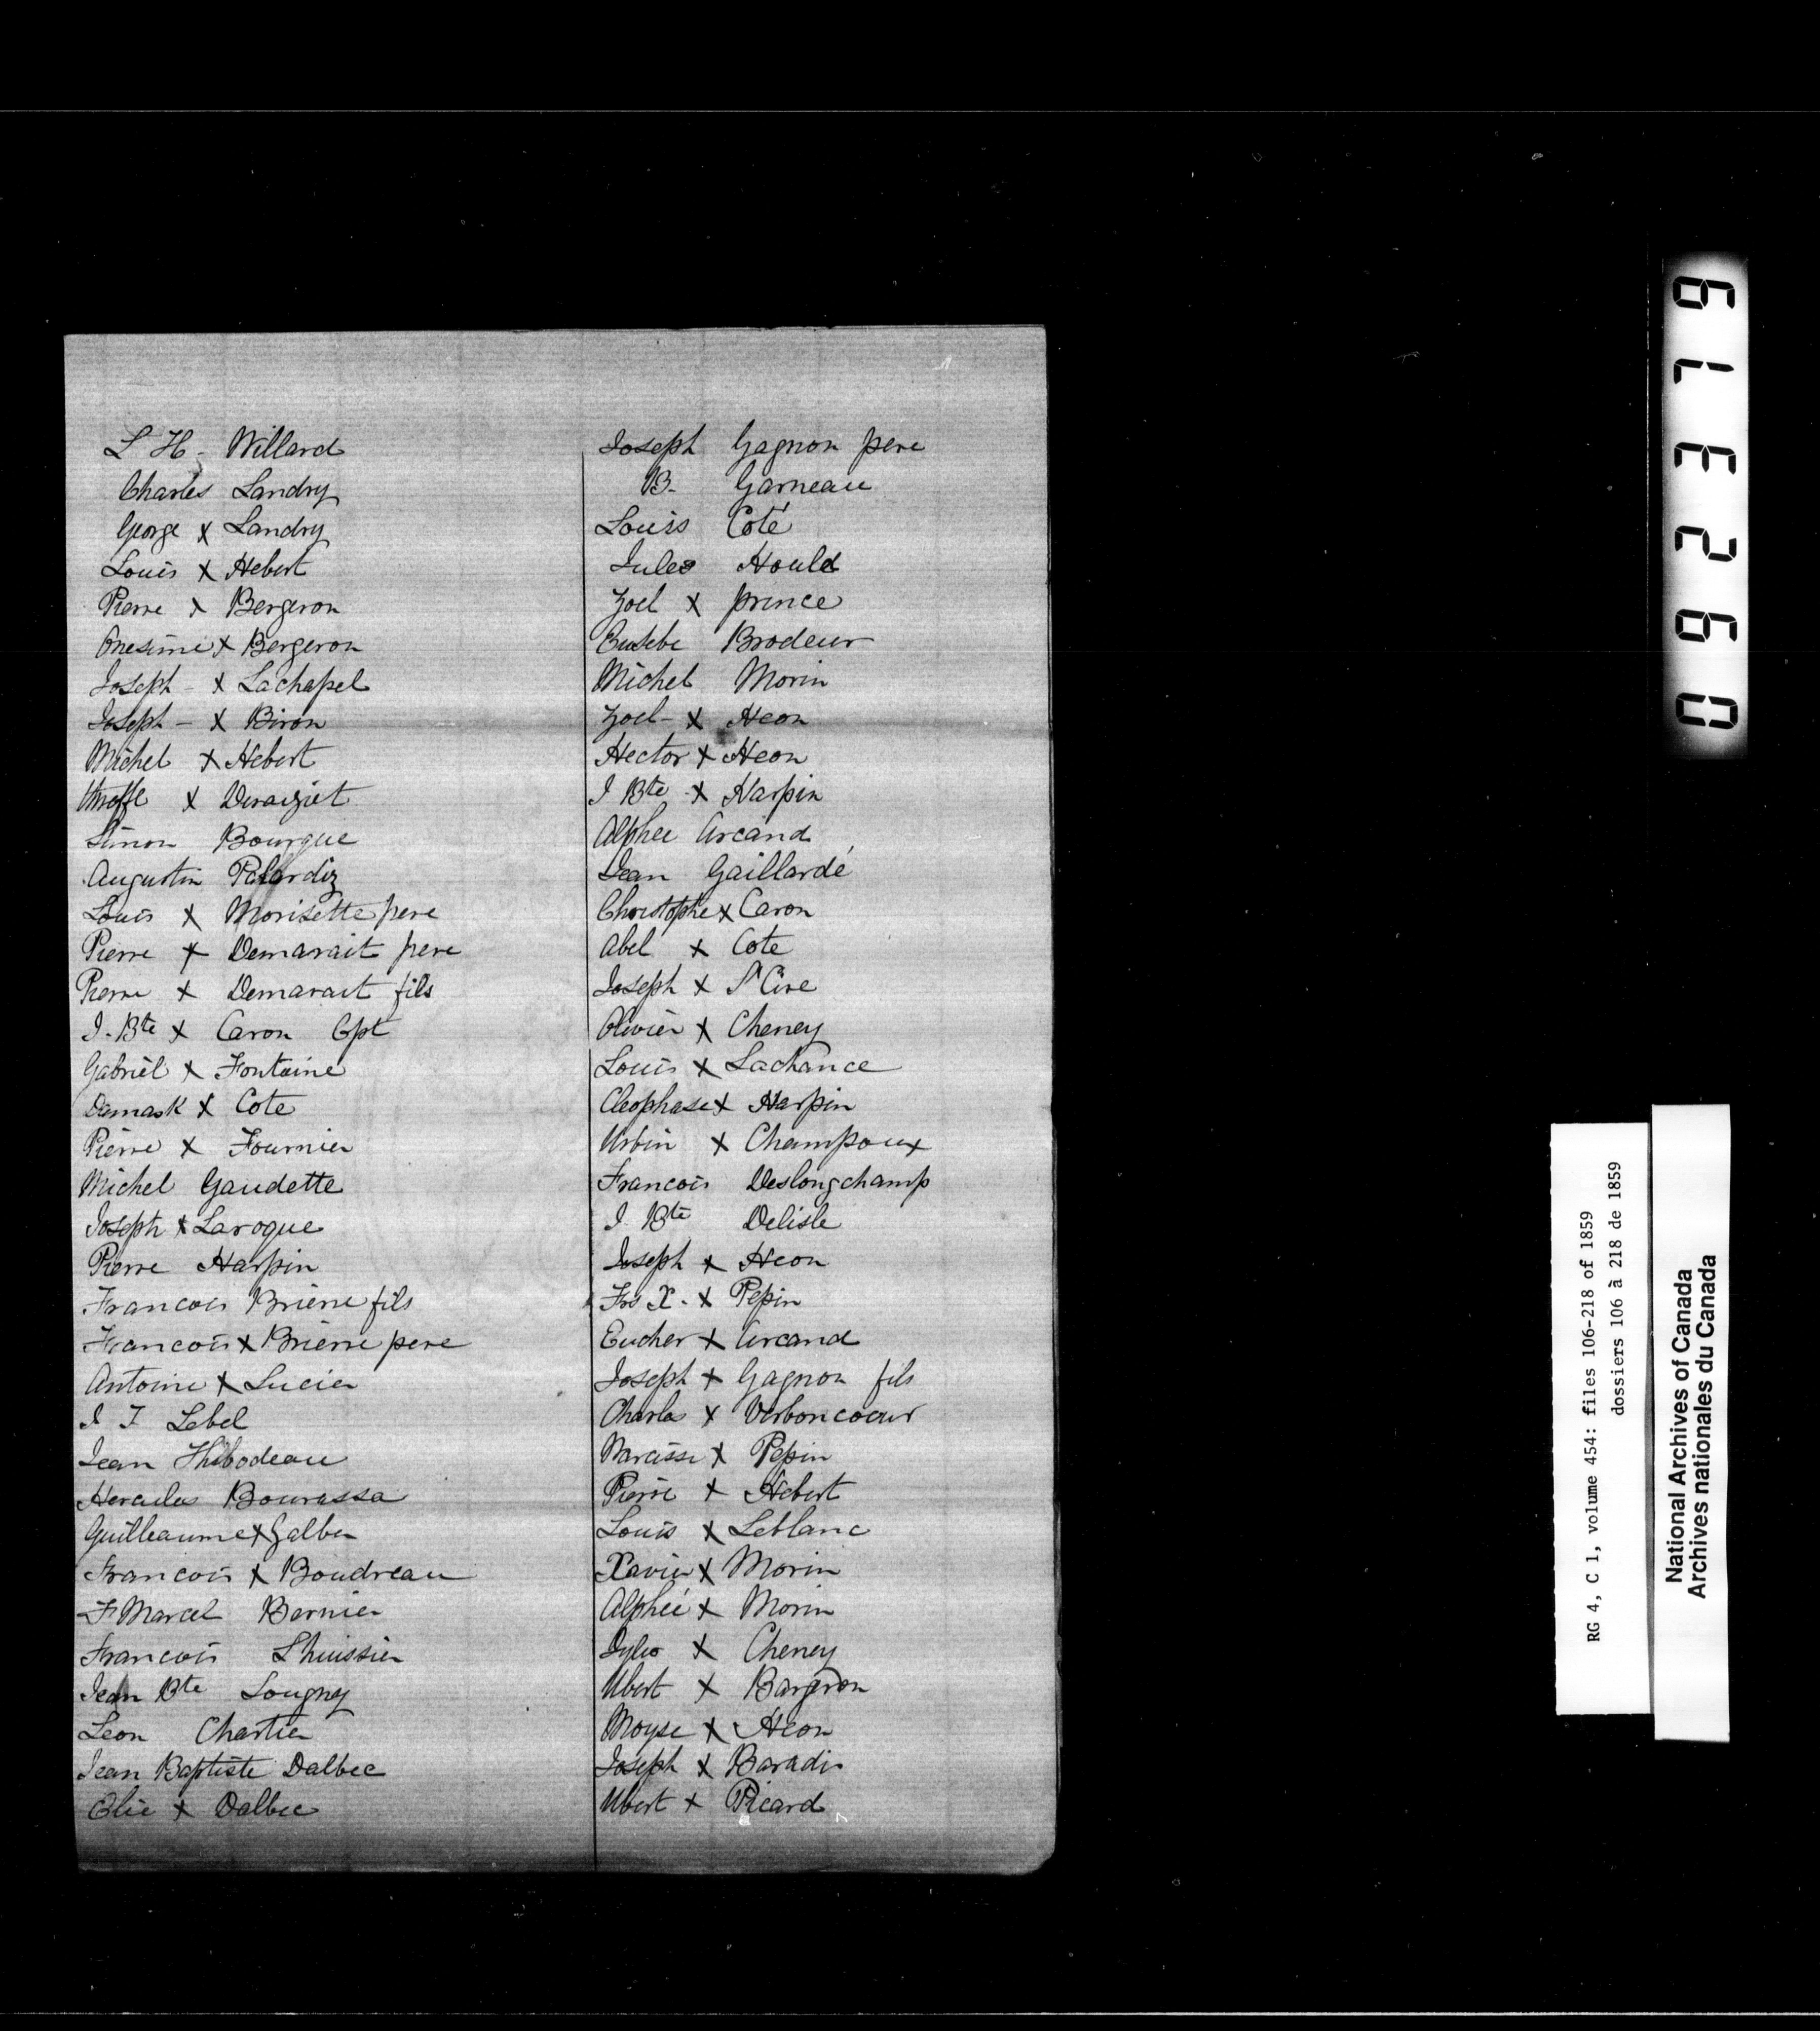 L H - Willard
Charles Landry
George x Landry
Louis x Hebert
Pierre x Bergeron
Onesime x Bergeron
Joseph - x Lachapel
Joseph - x Biron
Michel x Hebert
x
Simon Bourque
Augustin Palardiz
Louis x Morisette pere
Pierre x Demarait pere
Pierre x Demarait fils
J. Bte x Caron Cpt
Gabriel x Fontaine
Damask x Cote
Pierre x Fournier
Michel Gaudette
Joseph x Laroque
Pierre Harpin
Francois Brierre fils
Francois x Brierre pere
Antoine x Lucier
J F Lebel
Jean Thibodeau
Hercules Bourassa
Guilleaume x
Francois x Boudreau
F Marcel Bernier
Francois Lhuissier
Jean Bte Lougny
Leon Chartier
Jean Baptiste Dalbec
Elie x Dalbec
Joseph Gagnon pere
B. Garneau
Louis Coté
Jules Hould
Zoel x prince
Eusebe Brodeur
Michel Morin
Zoel - x Heon
Hector x Heon
J Bte x Harpin
Alphee Arcand
Jean Gaillardé
Christophe x Caron
Abel x Cote
Joseph x St Cire
Olivier x Cheney
Louis x Lachance
Cleophase x Harpin
Urbin x Champoux
Francois Deslongchamp
J. Bte Delisle
Joseph x Heon
Frs X. x Pepin
Eucher x Arcand
Joseph x Gagnon fils
Charles x Verboncoeur
Narcisse x Pepin
Pierre x Hebert
Louis x Leblanc
Xavier x Morin
Alphée x Morin
x Cheney
Ubert x Bargeron
Moyse x Heon
Joseph x Baradis
Ubert x Picard
062319
RG 4, C 1, volume 454: files 106-218 of 1859
dossiers 106 à 218 de 1859
National Archives of Canada
Archives nationales du Canada